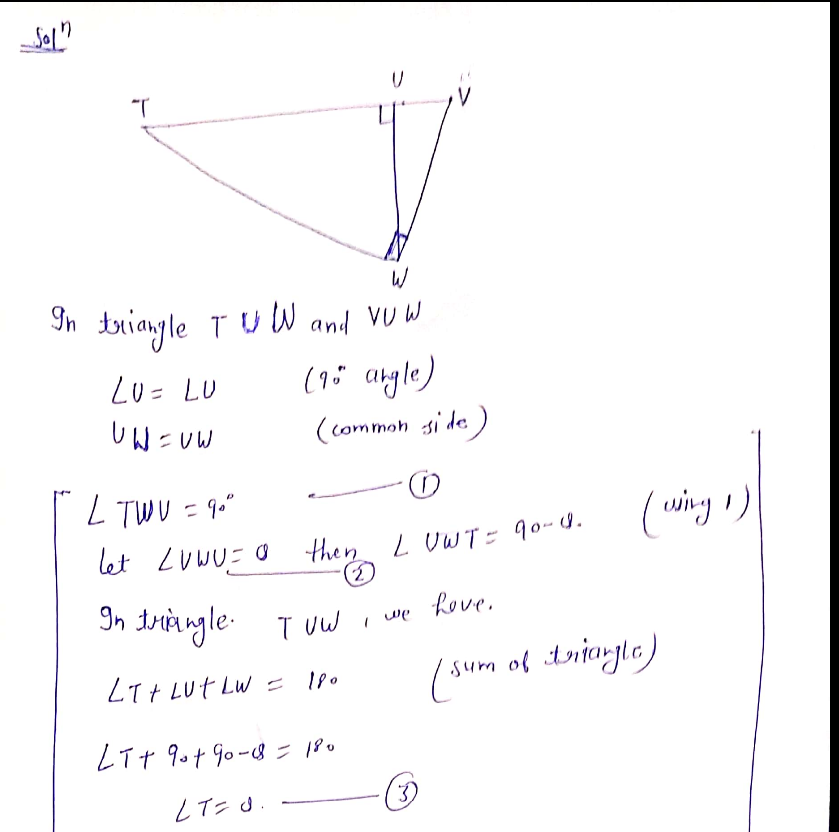 Solⁿ
U
T
V
W
In triangle TUW and VUW
∠U = ∠U (90° angle)
UW = UW (common side)
∠TWV = 90° ——— ①
let ∠VWU = θ then ∠UWT = 90-θ. (using 1)
②
In triangle. TUW, we have.
∠T + ∠U + ∠W = 180 (sum of triangle)
∠T + 90 + 90-θ = 180
∠T = θ. ——— ③